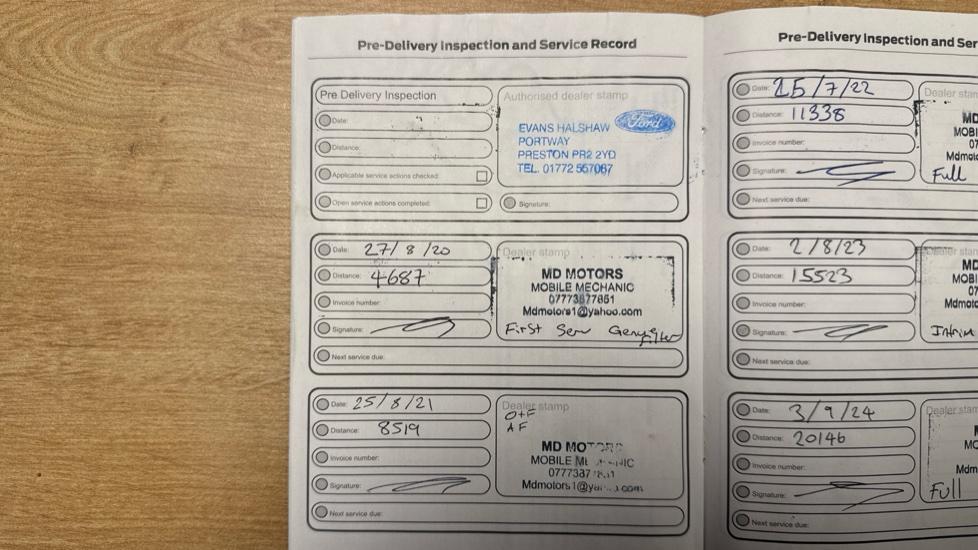 Pre-Delivery Inspection and Service Record
Pre Delivery Inspection
Date:
Distance:
Applicable service actions checked:
Open service actions completed:
Authorised dealer stamp
Ford
EVANS HALSHAW
PORTWAY
PRESTON PR2 2YD
TEL. 01772 557067
Signature:
Date: 27/8/20
Distance: 4687
Invoice number:
Signature:
Next service due:
Dealer stamp
MD MOTORS
MOBILE MECHANIC
07773877851
Mdmotors1@yahoo.com
First Serv
Filter
Date: 25/8/21
Distance: 8519
Invoice number:
Signature:
Next service due:
Dealer stamp
O+F
AF
MD MOTORS
MOBILE
0777387
Mdmotors1@
Pre-Delivery Inspection and Ser
Date: 25/7/22
Distance: 11338
Invoice number:
Signature:
Next service due:
Dealer stam
MD
MOBI
07
Mdmoto
Full
Date: 2/8/23
Distance: 15523
Invoice number:
Signature:
Next service due:
Dealer stam
MD
MOBI
07
Mdmoto
Intrim
Date: 3/9/24
Distance: 20146
Invoice number:
Signature:
Next service due:
Dealer stam
MO
Mdm
Full